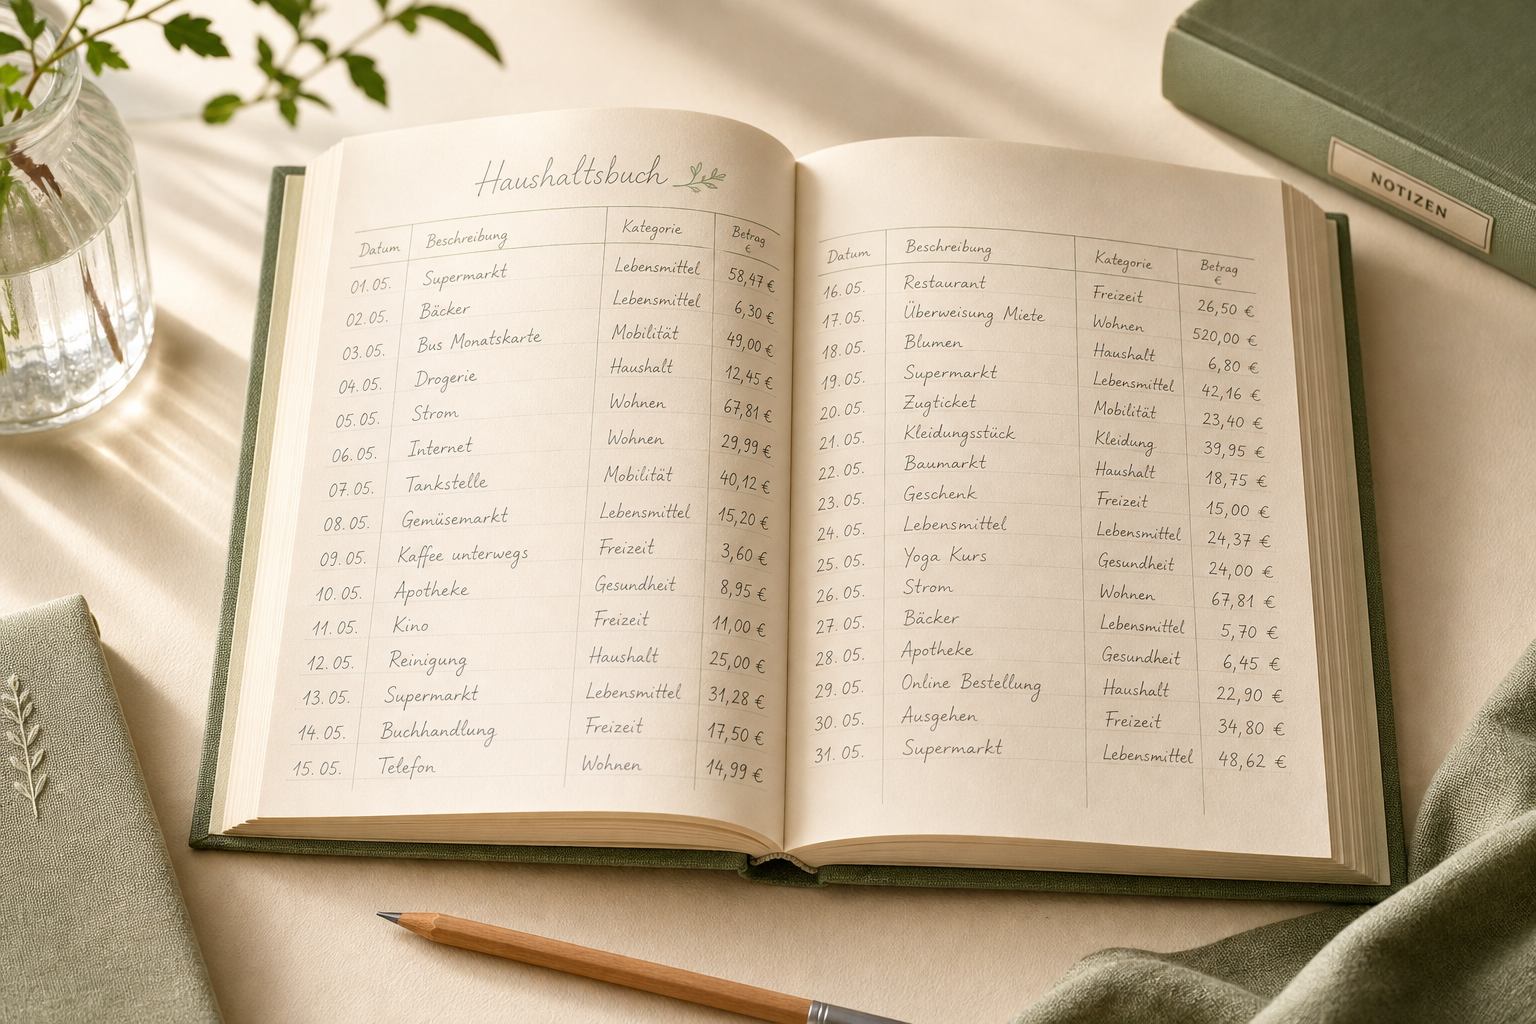 Haushaltsbuch
Datum Beschreibung Kategorie Betrag €
01.05. Supermarkt Lebensmittel 58,47 €
02.05. Bäcker Lebensmittel 6,30 €
03.05. Bus Monatskarte Mobilität 49,00 €
04.05. Drogerie Haushalt 12,45 €
05.05. Strom Wohnen 67,81 €
06.05. Internet Wohnen 29,99 €
07.05. Tankstelle Mobilität 40,12 €
08.05. Gemüsemarkt Lebensmittel 15,20 €
09.05. Kaffee unterwegs Freizeit 3,60 €
10.05. Apotheke Gesundheit 8,95 €
11.05. Kino Freizeit 11,00 €
12.05. Reinigung Haushalt 25,00 €
13.05. Supermarkt Lebensmittel 31,28 €
14.05. Buchhandlung Freizeit 17,50 €
15.05. Telefon Wohnen 14,99 €
Datum Beschreibung Kategorie Betrag €
16.05. Restaurant Freizeit 26,50 €
17.05. Überweisung Miete Wohnen 520,00 €
18.05. Blumen Haushalt 6,80 €
19.05. Supermarkt Lebensmittel 42,16 €
20.05. Zugticket Mobilität 23,40 €
21.05. Kleidungsstück Kleidung 39,95 €
22.05. Baumarkt Haushalt 18,75 €
23.05. Geschenk Freizeit 15,00 €
24.05. Lebensmittel Lebensmittel 24,37 €
25.05. Yoga Kurs Gesundheit 24,00 €
26.05. Strom Wohnen 67,81 €
27.05. Bäcker Lebensmittel 5,70 €
28.05. Apotheke Gesundheit 6,45 €
29.05. Online Bestellung Haushalt 22,90 €
30.05. Ausgehen Freizeit 34,80 €
31.05. Supermarkt Lebensmittel 48,62 €
NOTIZEN